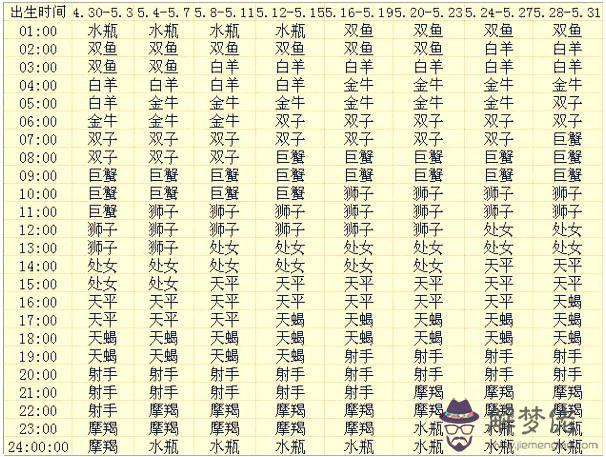 出生时间 4.30-5.3 5.4-5.7 5.8-5.11 5.12-5.15 5.16-5.19 5.20-5.23 5.24-5.27 5.28-5.31
01:00 水瓶 水瓶 水瓶 水瓶 双鱼 双鱼 双鱼 双鱼
02:00 双鱼 双鱼 双鱼 双鱼 双鱼 双鱼 白羊 白羊
03:00 双鱼 双鱼 白羊 白羊 白羊 白羊 白羊 白羊
04:00 白羊 白羊 白羊 白羊 金牛 金牛 金牛 金牛
05:00 白羊 金牛 金牛 金牛 金牛 金牛 金牛 双子
06:00 金牛 金牛 金牛 双子 双子 双子 双子 双子
07:00 双子 双子 双子 双子 双子 双子 双子 巨蟹
08:00 双子 双子 双子 巨蟹 巨蟹 巨蟹 巨蟹 巨蟹
09:00 巨蟹 巨蟹 巨蟹 巨蟹 巨蟹 巨蟹 巨蟹 巨蟹
10:00 巨蟹 巨蟹 巨蟹 巨蟹 狮子 狮子 狮子 狮子
11:00 巨蟹 狮子 狮子 狮子 狮子 狮子 狮子 狮子
12:00 狮子 狮子 狮子 狮子 狮子 狮子 处女 处女
13:00 狮子 狮子 处女 处女 处女 处女 处女 处女
14:00 处女 处女 处女 处女 处女 处女 天平 天平
15:00 处女 处女 天平 天平 天平 天平 天平 天平
16:00 天平 天平 天平 天平 天平 天平 天平 天蝎
17:00 天平 天平 天平 天蝎 天蝎 天蝎 天蝎 天蝎
18:00 天蝎 天蝎 天蝎 天蝎 天蝎 天蝎 天蝎 天蝎
19:00 天蝎 天蝎 天蝎 天蝎 射手 射手 射手 射手
20:00 射手 射手 射手 射手 射手 射手 射手 射手
21:00 射手 射手 射手 射手 射手 摩羯 摩羯 摩羯
22:00 射手 摩羯 摩羯 摩羯 摩羯 摩羯
23:00 摩羯 摩羯 摩羯 摩羯 摩羯 水瓶
24:00:00 摩羯 水瓶 水瓶 水瓶 水瓶 水瓶 水瓶 水瓶
解梦佬
www.jiemenglao.com